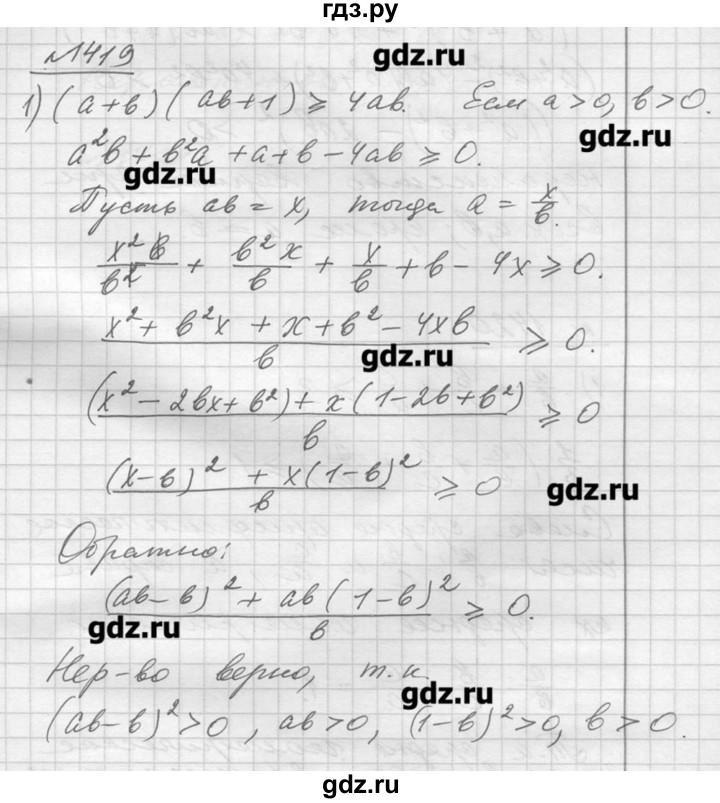 гдз.ру
№1419
gdz.ru
1) (a+b)(ab+1) ≥ 4ab. Если a>0, b>0.
gdz.ru
a²b + b²a + a + b - 4ab ≥ 0.
gdz.ru
Пусть ab = x, тогда a = x/b.
x²b/b² + b²x/b + x/b + b - 4x ≥ 0.
(x² + b²x + x + b² - 4xb)/b ≥ 0.
gdz.ru
((x² - 2bx + b²) + x(1 - 2b + b²))/b ≥ 0
((x-b)² + x(1-b)²)/b ≥ 0
gdz.ru
Обратно:
((ab-b)² + ab(1-b)²)/b ≥ 0.
gdz.ru
Нер-во верно, т.к.
gdz.ru
(ab-b)²>0, ab>0, (1-b)²>0, b>0.
gdz.ru